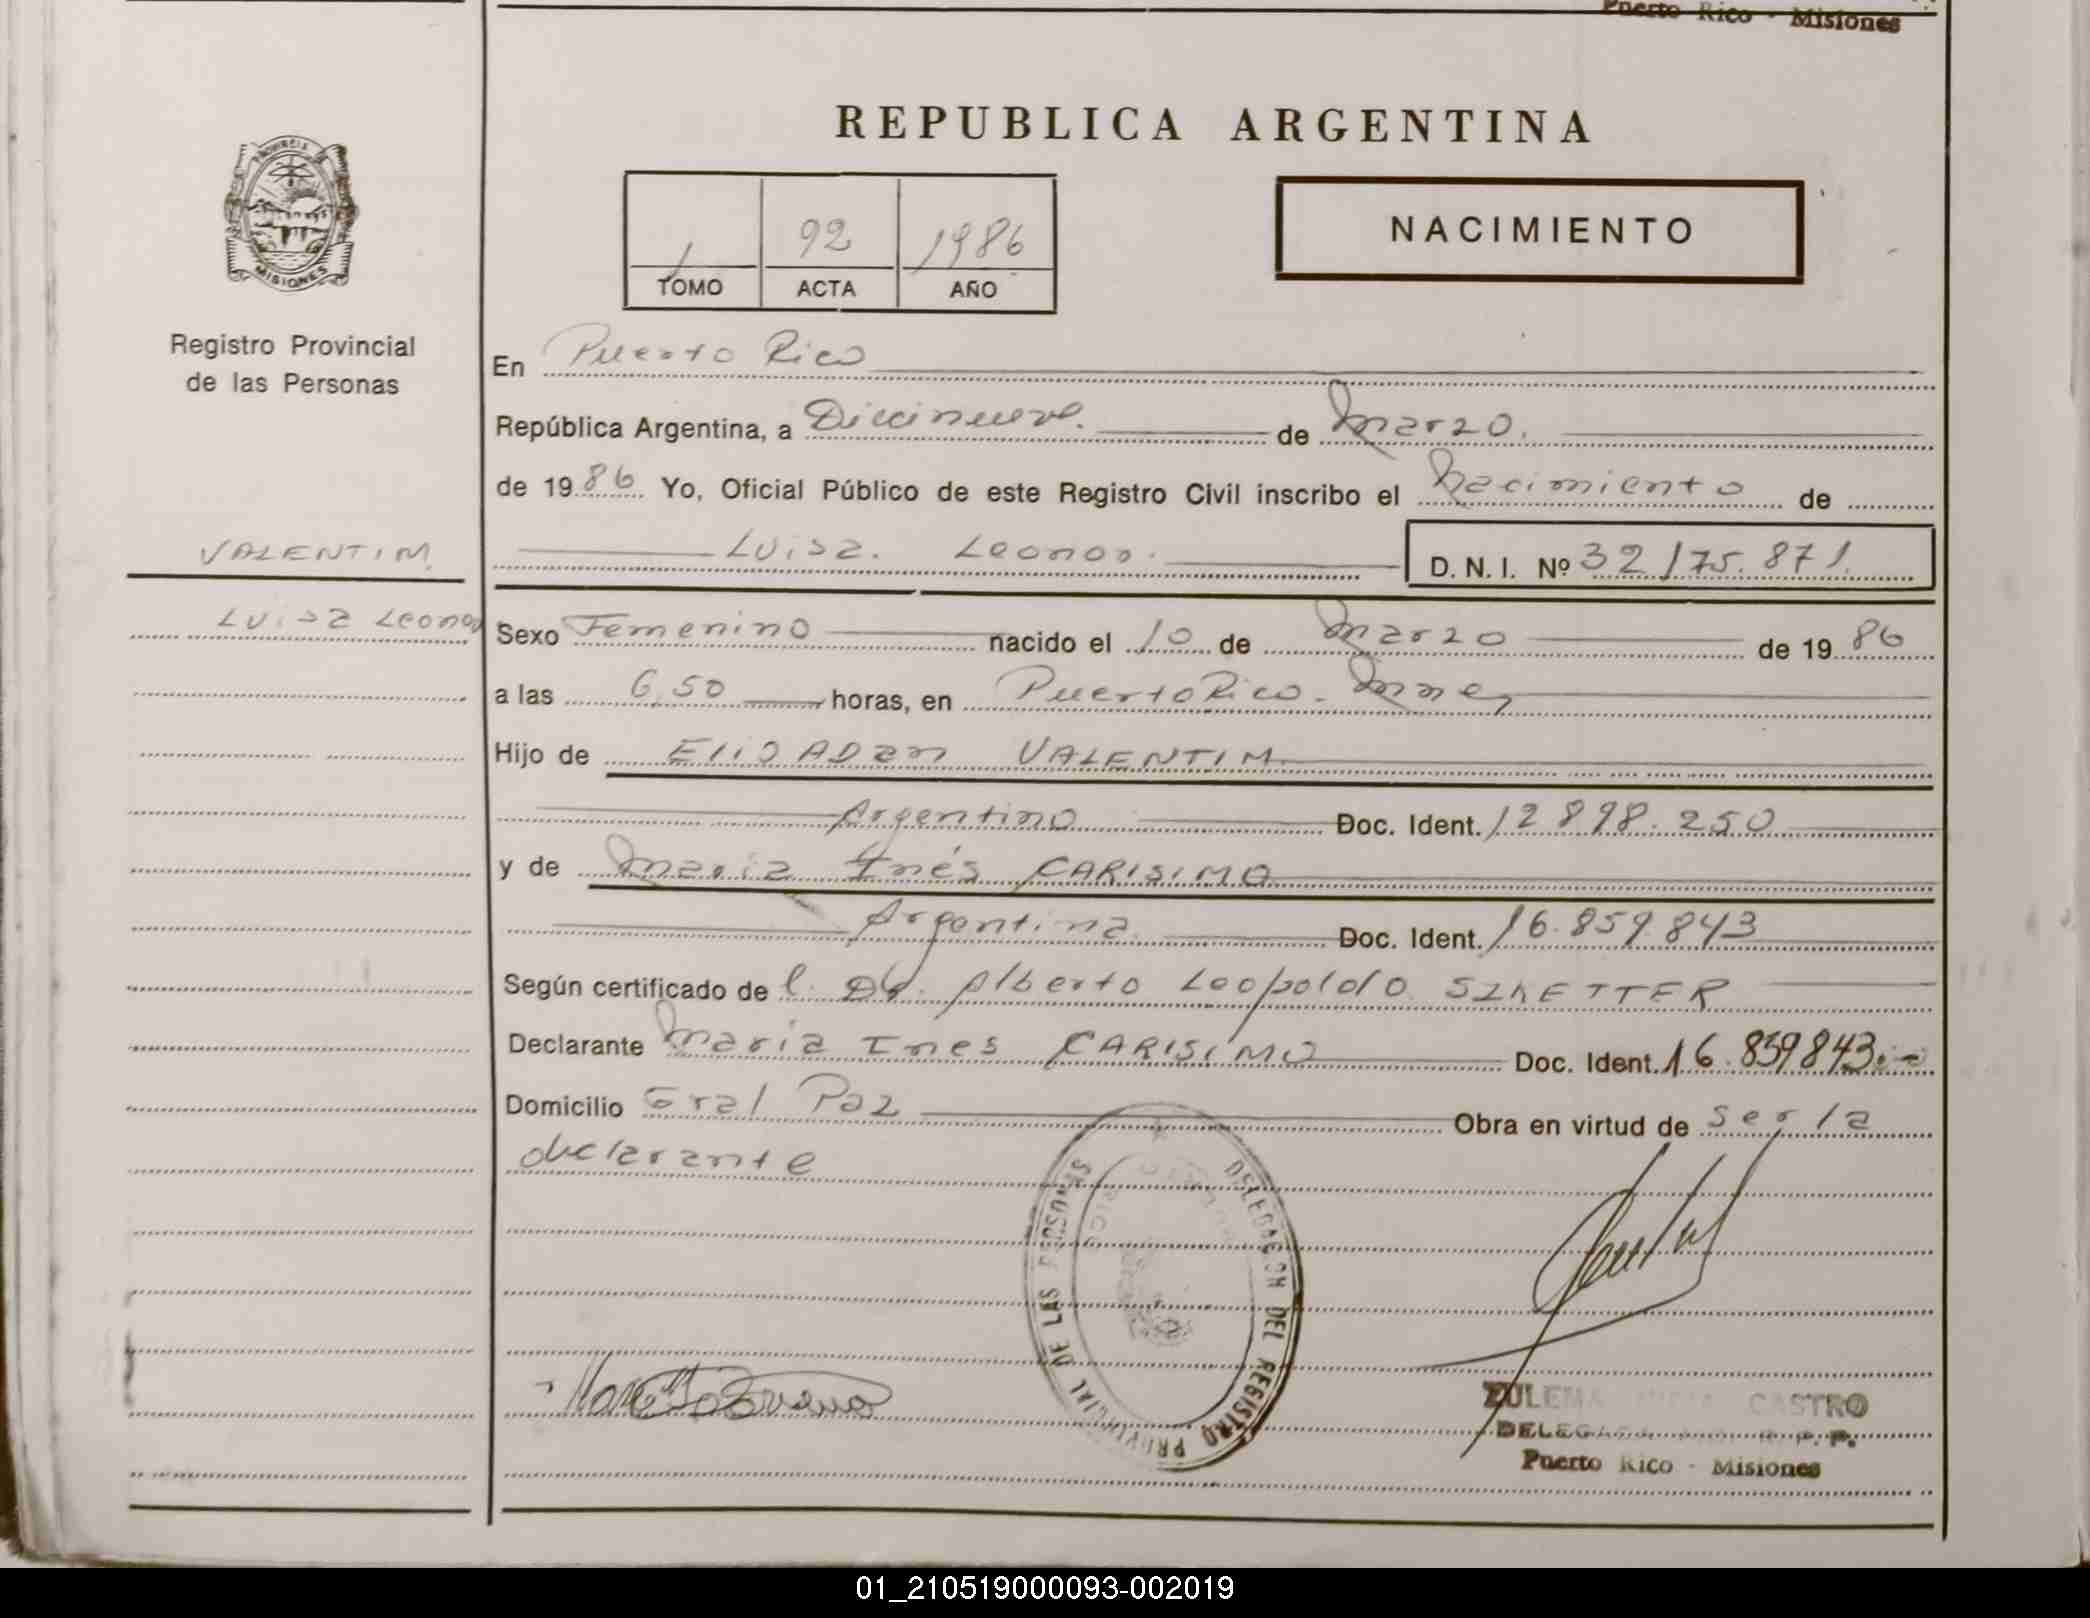 Puerto Rico - Misiones
REPUBLICA ARGENTINA
PROVINCIA DE
MISIONES
1 92 1986
TOMO ACTA AÑO
NACIMIENTO
Registro Provincial
de las Personas
En Puerto Rico
República Argentina, a Diecinueve. de Marzo.
de 1986 Yo, Oficial Público de este Registro Civil inscribo el Nacimiento de
VALENTIM
Luisa Leonor. D. N. I. Nº 32175.871.
Luisa Leonor
Sexo Femenino nacido el 10 de Marzo de 1986
a las 6,50 horas, en Puerto Rico. Mnes
Hijo de Elio ADan VALENTIM
Argentino Doc. Ident. 12898.250
y de Maria Inés CARISIMO
Argentina. Doc. Ident. 16.859.843
Según certificado de l. Dr. Alberto Leopoldo
Declarante Maria Ines CARISIMO Doc. Ident. 16.859843.
Domicilio Gral Paz Obra en virtud de ser la
declarante
DELEGACION DEL REGISTRO PROVINCIAL DE LAS PERSONAS
ZULEMA CASTRO
DELEGADA R. P. P.
Puerto Rico - Misiones
01_210519000093-002019